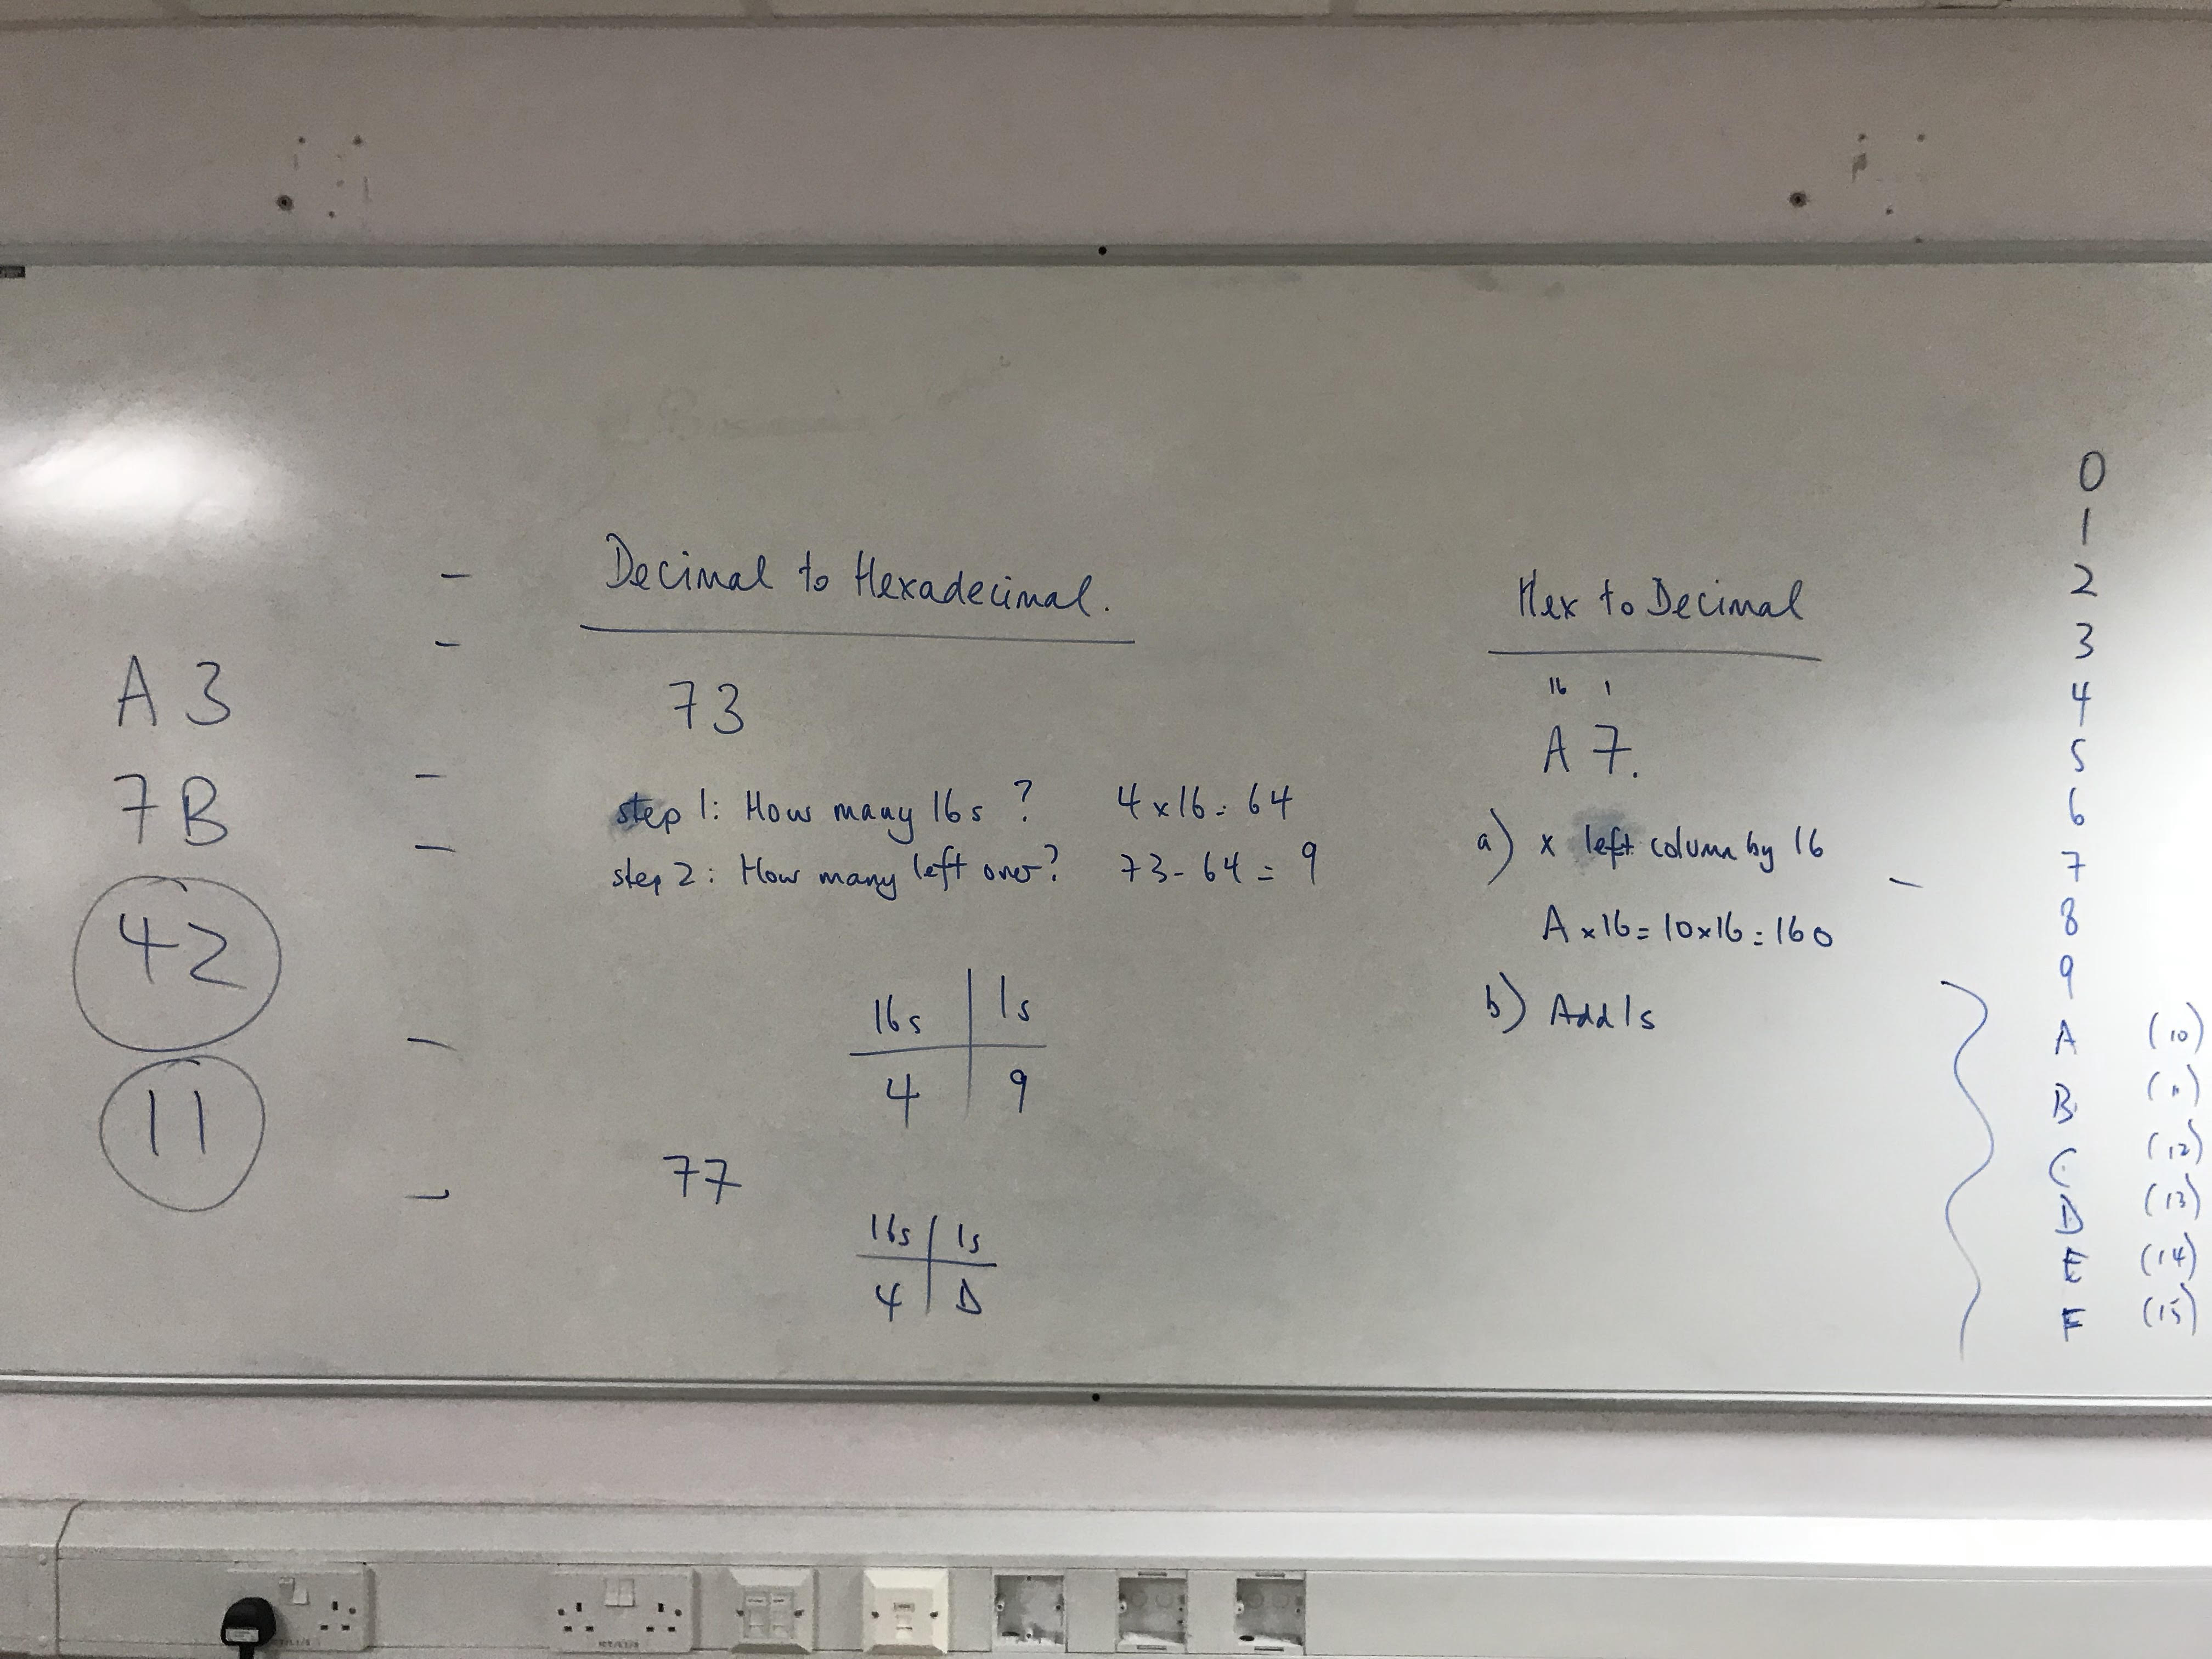 A 3
7 B
42
11
Decimal to Hexadecimal.
73
step 1: How many 16s ? 4 x 16 = 64
step 2: How many left over? 73 - 64 = 9
16s 1s
4 9
77
16s 1s
4 D
Hex to Decimal
16 1
A 7.
a) x left column by 16
A x 16 = 10 x 16 = 160
b) Add 1s
0
1
2
3
4
5
6
7
8
9
A (10)
B (11)
C (12)
D (13)
E (14)
F (15)